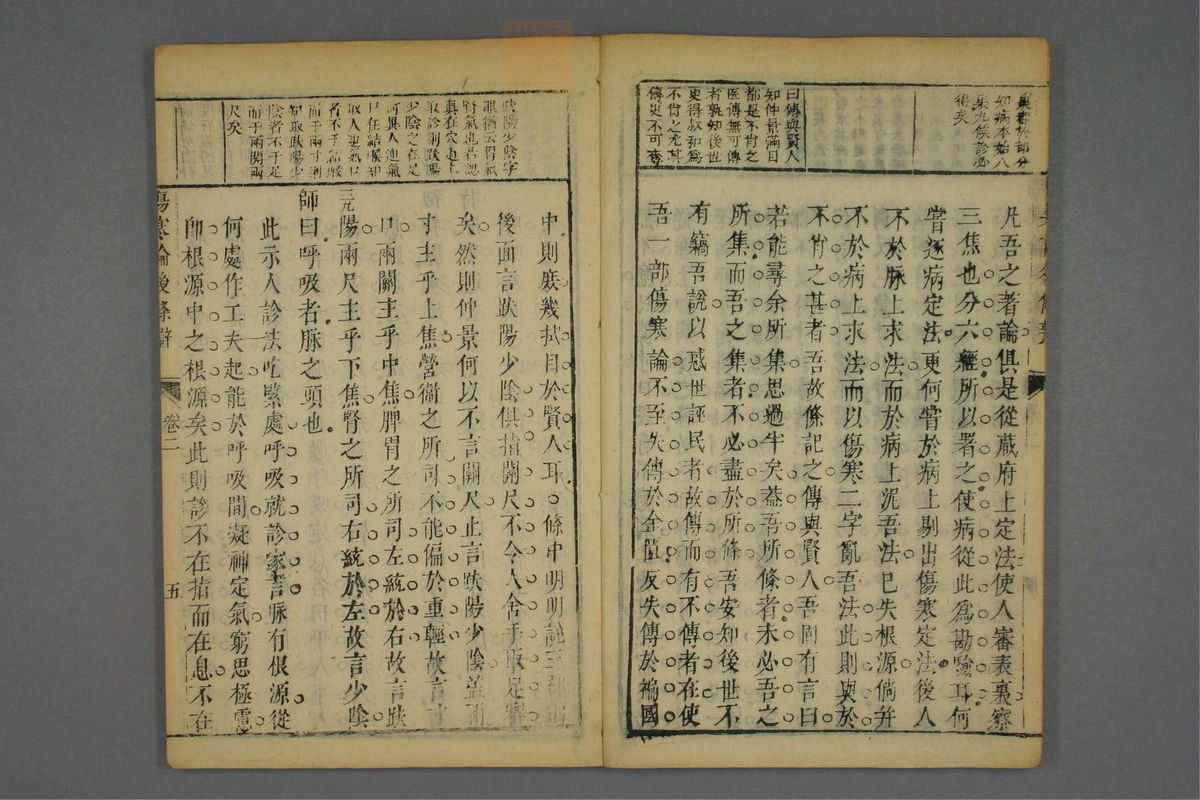 表審於部分
知病本始八
裏九候診必
得矣
曰傳與賢人
知仲景滿目
都是不肖之
醫傳無可傳
者孰知後世
更得叔和爲
不肖之尤其
傳更不可
凡吾之著論俱是從藏府上定法使人審表裏察
三焦也分六經所以署之使病從此爲勘驗耳何
嘗逐病定法更何嘗於病上剔出傷寒定法後人
不於脉上求法而於病上泥吾法已失根源倘并
不於病上求法而以傷寒二字亂吾法此則與於
不肖之甚者吾故條記之傳與賢人吾固有言曰
若能尋余所集思過半矣葢吾所條者未必吾之
所集而吾之集者不必盡於所條吾安知後世不
有竊吾說以惑世誣民者故傳而有不傳者在使
吾一部傷寒論不至失傳於金匱反失傳於褊國
趺陽少陰字
眼猶云胃氣
腎氣也若認
真在穴道上
取診則趺陽
少陰之在足
何異人迎氣
口在結喉却
取人迎氣口
者不于結喉
而于兩寸則
知取趺陽少
陰者不于足
而于兩關兩
尺矣
中則庶幾拭目於賢人耳○條中明明說三部
後面言趺陽少陰俱指關尺不令人舍手取足實
矣然則仲景何以不言關尺止言趺陽少陰葢兩
寸主乎上焦營衞之所司不能偏於重輕故言寸
口兩關主乎中焦脾胃之所司左統於右故言趺
陽兩尺主乎下焦腎之所司右統於左故言少陰
師曰呼吸者脉之頭也
此示人診法吃緊處呼吸就診家言脉有根源從
何處作工夫起能於呼吸間凝神定氣窮思極慮
卽根源中之根源矣此則診不在指而在息不在
傷寒論後條辯
卷二
五